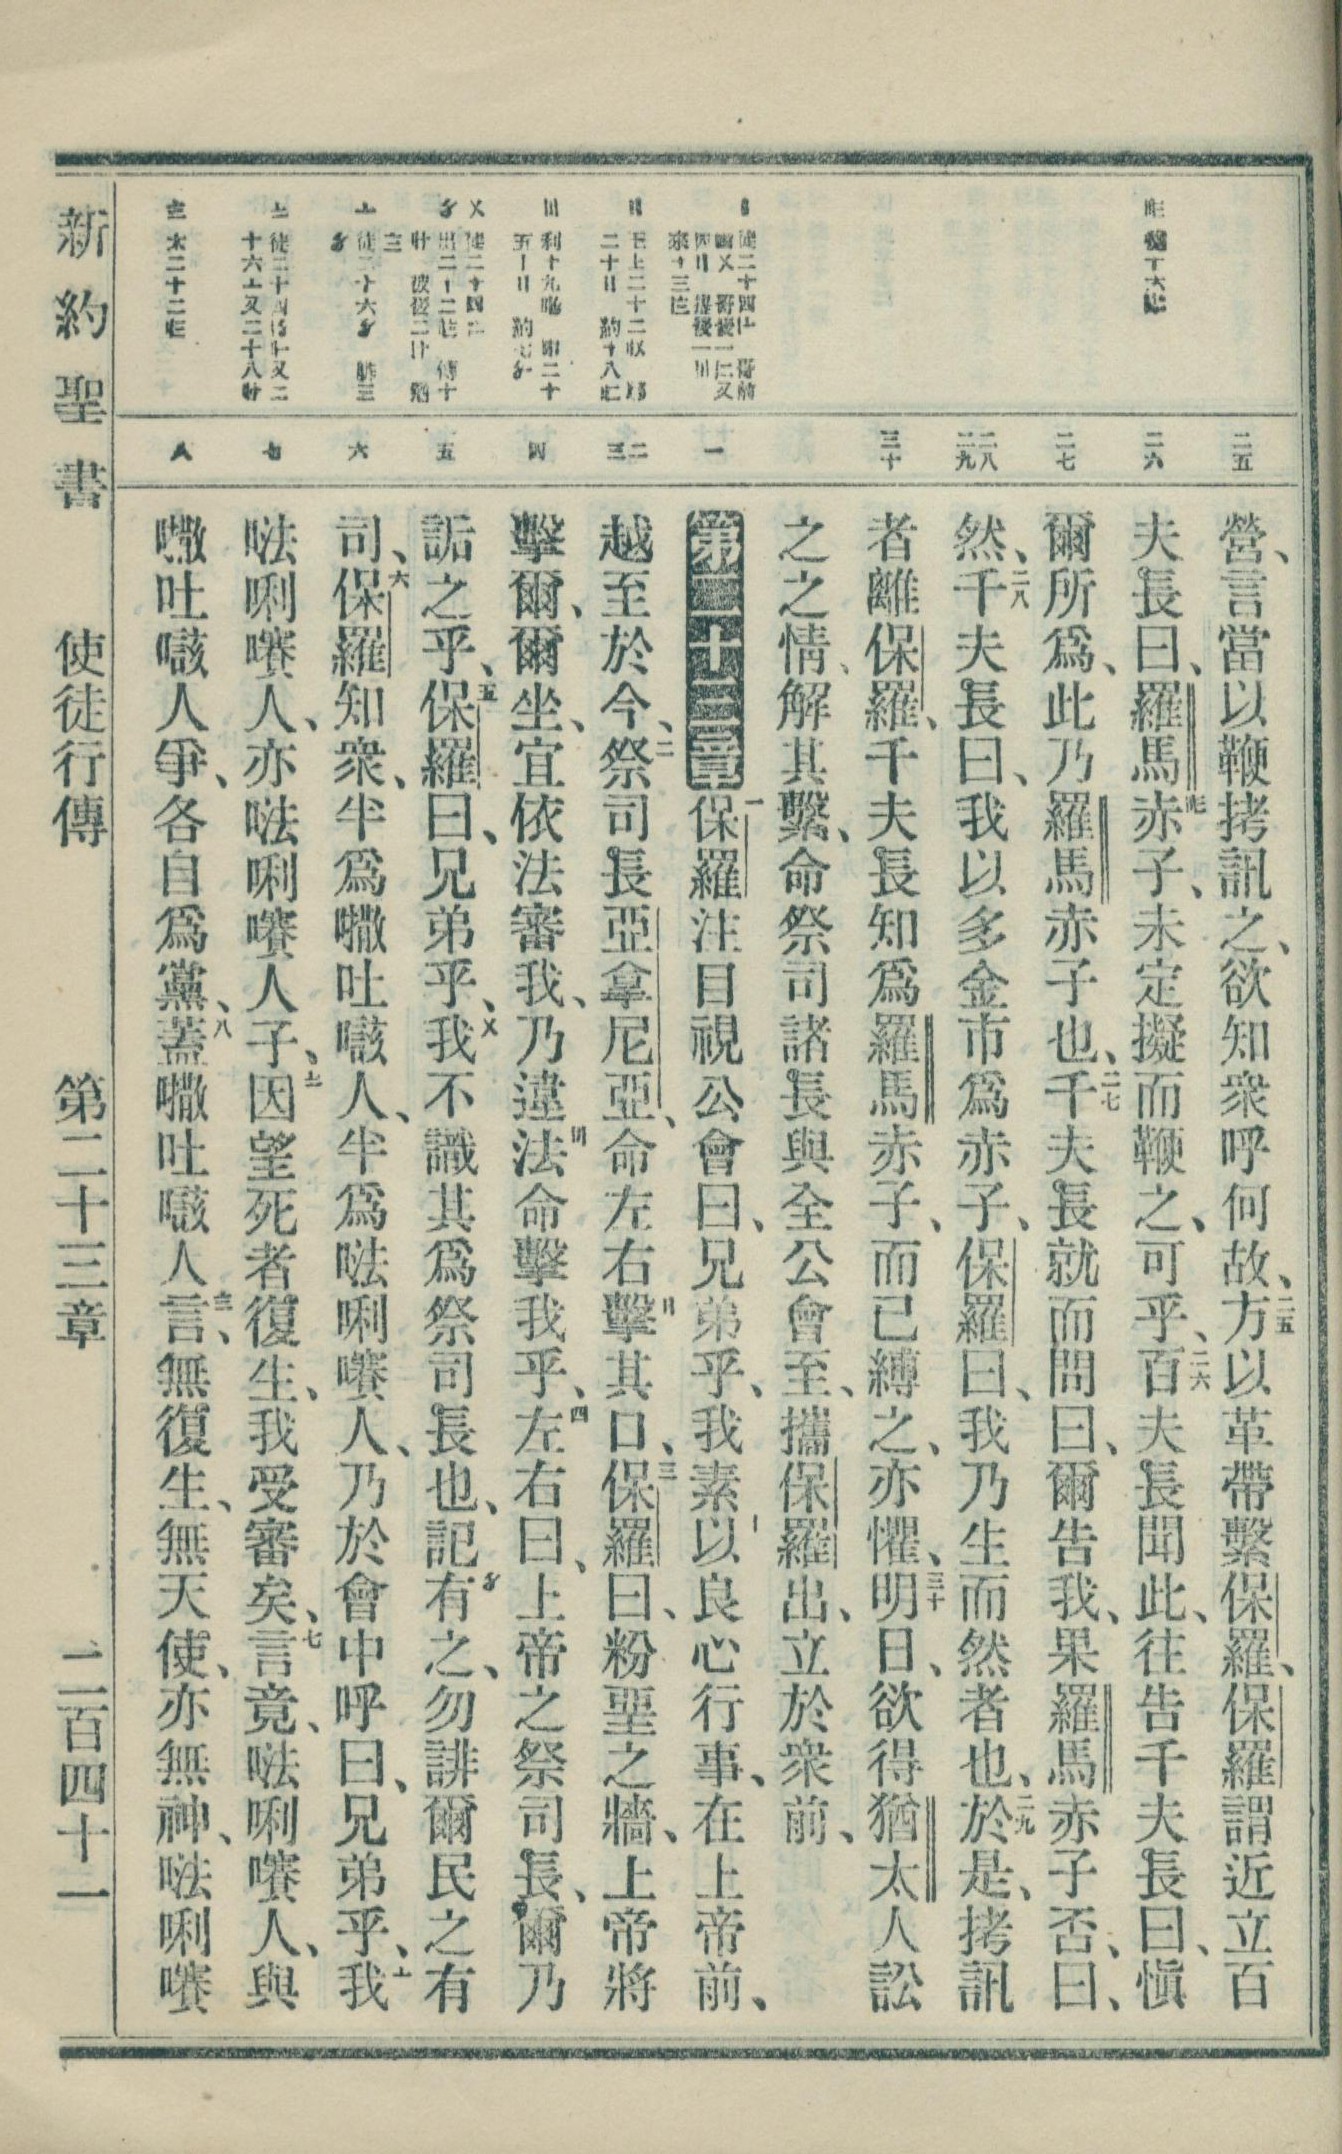 營、言當以鞭拷訊之、欲知衆呼何故、二五方以革帶繫保羅、保羅謂近立百
夫長曰、羅馬赤子、未定擬而鞭之、可乎、二六百夫長聞此、往告千夫長曰、愼
爾所爲、此乃羅馬赤子也、二七千夫長就而問曰、爾告我、果羅馬赤子否、曰、
然、二八千夫長曰、我以多金市爲赤子、保羅曰、我乃生而然者也、二九於是、拷訊
者離保羅、千夫長知爲羅馬赤子、而已縛之、亦懼、三十明日、欲得猶太人訟
之之情、解其繫、命祭司諸長與全公會至、攜保羅出、立於衆前、
第二十三章 一保羅注目視公會曰、兄弟乎、我素以良心行事、在上帝前、
越至於今、二祭司長亞拿尼亞、命左右擊其口、三保羅曰、粉堊之牆、上帝將
擊爾、爾坐、宜依法審我、乃違法命擊我乎、四左右曰、上帝之祭司長、爾乃
詬之乎、五保羅曰、兄弟乎、我不識其爲祭司長也、記有之、勿誹爾民之有
司、六保羅知衆、半爲㗾吐㗒人、半爲𠵽唎㘔人、乃於會中呼曰、兄弟乎、我
𠵽唎㘔人、亦𠵽唎㘔人子、因望死者復生、我受審矣、七言竟、𠵽唎㘔人、與
㗾吐㗒人爭、各自爲黨、八蓋㗾吐㗒人言、無復生、無天使、亦無神、𠵽唎㘔
二五
二六
二七
二八
二九
三十
一
二
三
四
五
六
七
八
新約聖書
使徒行傳
第二十三章
二百四十一